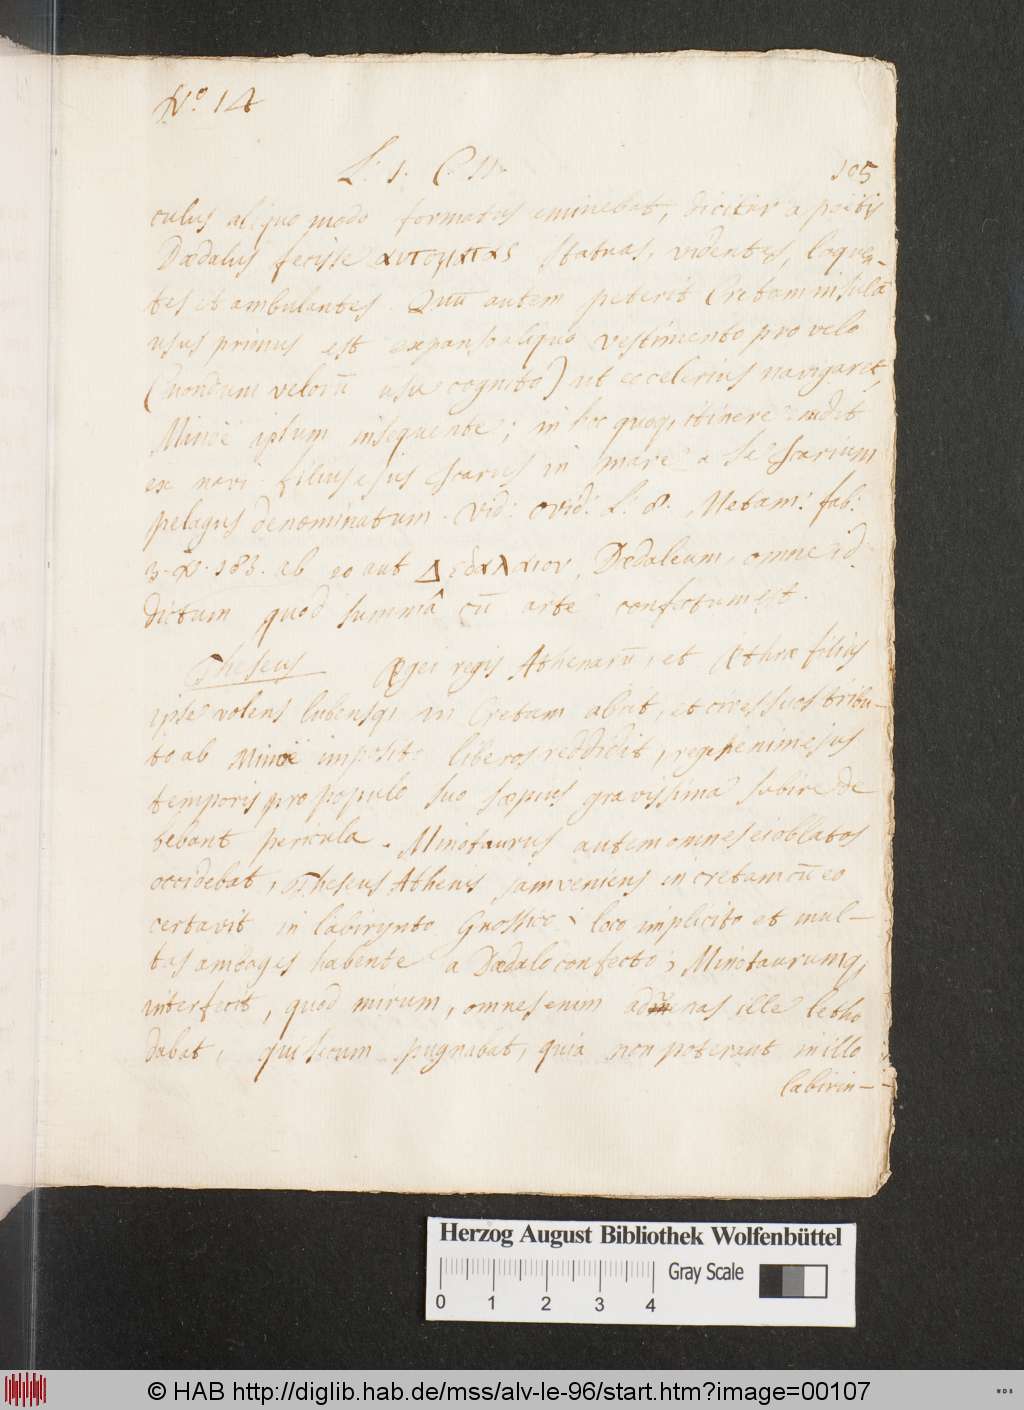 N.º 14
L: 1. C. 11.
105
culus aliquo modo formatus eminebat, dicitur a poëtis
Dædalus fecisse αυτοματας statuas, videntes, loquē-
tes et ambulantes. Quū autem peterit Cretam insulā
usus primus est expanso aliquo vestimento pro velo
(nondum velorū usu cognito) ut eo celerius navigaret,
Minoë ipsum insequente; in hoc quoq, itinere cadit
ex navi filius ejus Icarus in mare a se Icarium
pelagus denominatum. Vid: Ovid: L: 8. Metam: fab:
3. V. 183. ab eo aut Δεδαλαιον, Dædaleum, omne id
dictum quod summâ cū arte confectum est.
Theseus Ægei regis Athenarū, et Æthræ filius
ipse volens lubensq, in Cretam abiit, et cives suos tribu-
to ab Minoë imposito liberos reddidit, reges enim ejus
temporis pro populo suo sæpius gravissima subire de
bebant pericula. Minotaurus autem omnes ei oblatos
occidebat, Theseus Athenis jam veniens in cretam cū eo
certavit in labirynto Gnossico loco implicito et mul-
tas ambages habente a Dædalo confecto, Minotaurumq,
interfecit, quod mirum, omnes enim advenas ille letho
dabat, qui secum pugnabat, quia non poterant in illo
labirin-
Herzog August Bibliothek Wolfenbüttel
Gray Scale
0 1 2 3 4
© HAB http://diglib.hab.de/mss/alv-le-96/start.htm?image=00107